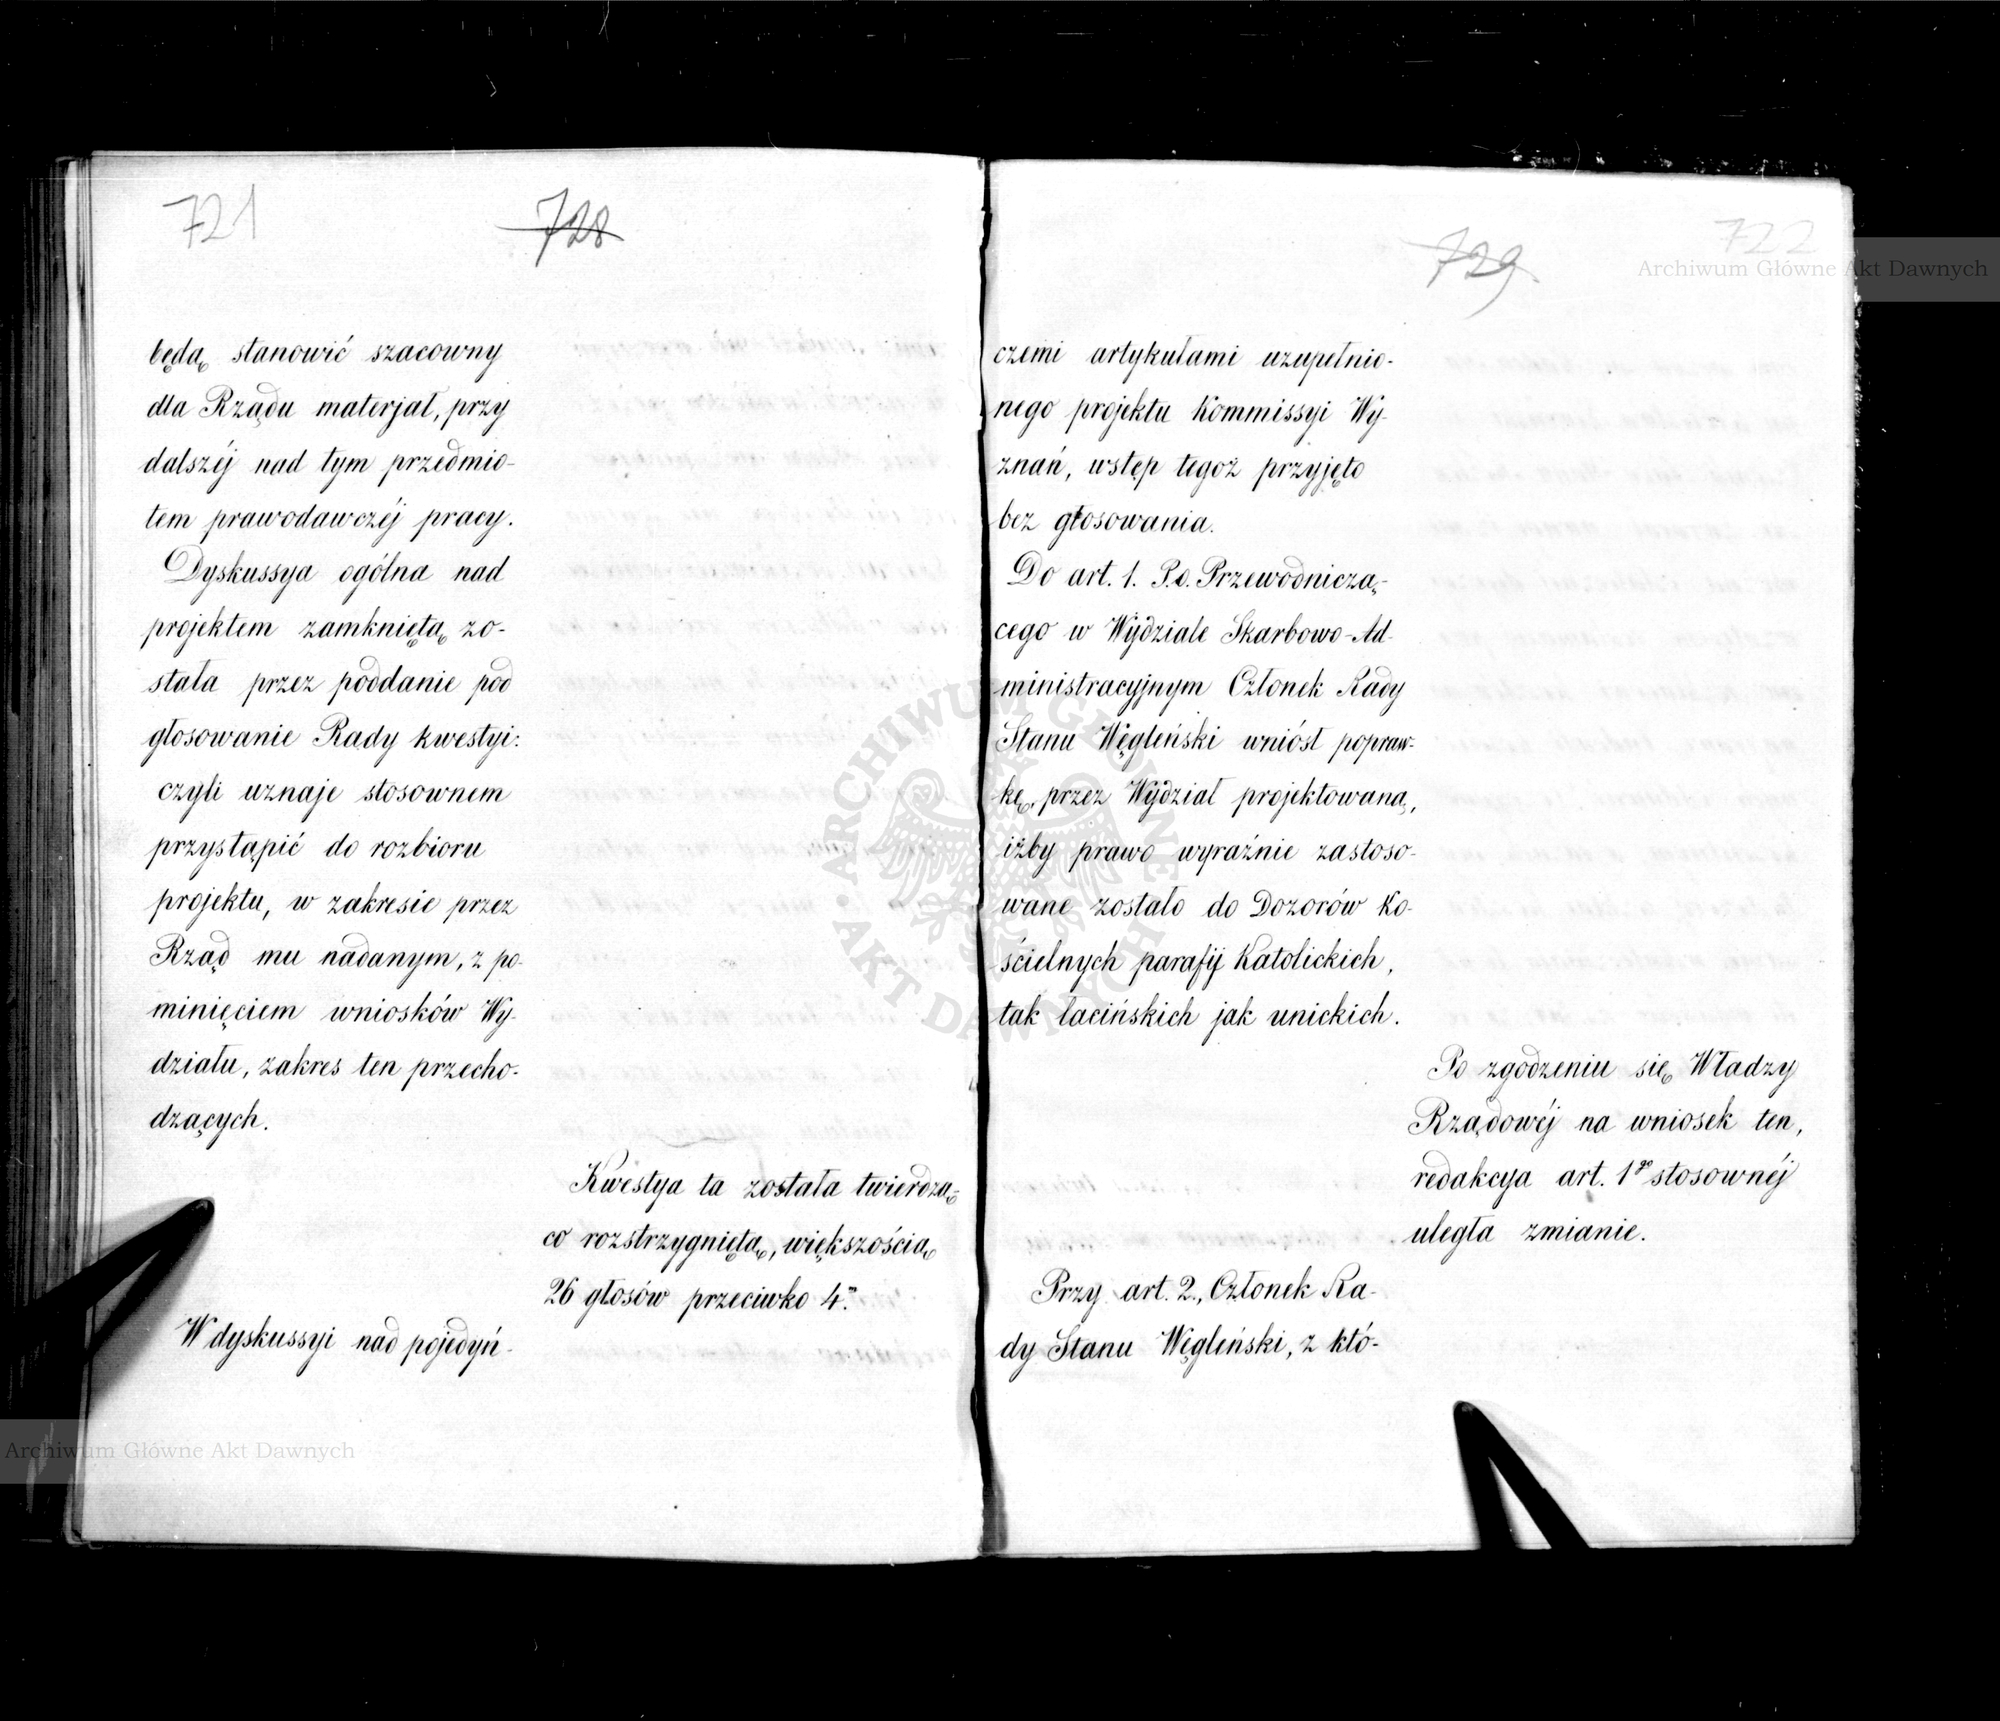 721
728
będą stanowić szacowny
dla Rządu materjał, przy
dalszéj nad tym przedmio-
tem prawodawczéj pracy.
Dyskussya ogólna nad
projektem zamkniętą zo-
stała przez poddanie pod
głosowanie Rady kwestyi:
czyli uznaje stosownem
przystąpić do rozbioru
projektu, w zakresie przez
Rząd mu nadanym, z po-
minięciem wniosków Wy-
działu, zakres ten przecho-
dzących.
Kwestya ta została twierdzą-
co rozstrzygniętą, większością
26 głosów przeciwko 4.
W dyskussyi nad pojedyń-
729
722
czemi artykułami uzupełnio-
nego projektu Kommissyi Wy-
znań, wstęp tegoż przyjęto
bez głosowania.
Do art. 1. P.o. Przewodniczą-
cego w Wydziale Skarbowo-Ad-
ministracyjnym Członek Rady
Stanu Węgleński wniósł popraw-
kę, przez Wydział projektowaną,
iżby prawo wyraźnie zastoso-
wane zostało do Dozorów Ko-
ścielnych parafij Katolickich,
tak łacińskich jak unickich.
Po zgodzeniu się Władzy
Rządowéj na wniosek ten,
redakcya art. 1go stosownéj
uległa zmianie.
Przy art. 2., Członek Ra-
dy Stanu Węgleński, z któ-
Archiwum Główne Akt Dawnych
ARCHIWUM GŁÓWNE
AKT DAWNYCH
Archiwum Główne Akt Dawnych